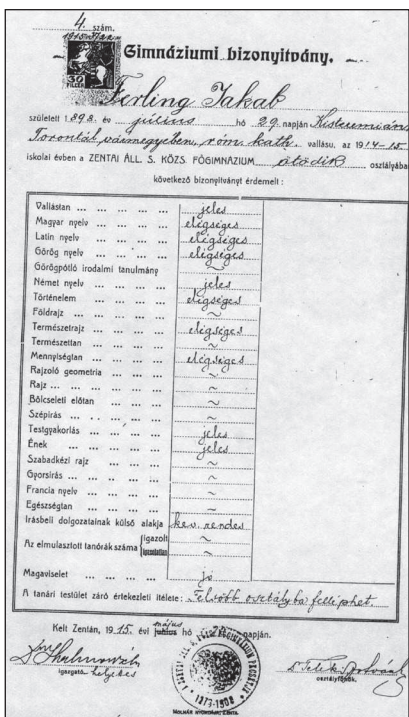 4. szám.
30
FILLÉR
Gimnáziumi bizonyitvány.
Ferling Jakab
született 1898. év július hó 29. napján Kisteremián,
Torontál vármegyében, róm. kath. vallásu, az 1914-15
iskolai évben a ZENTAI ÁLL. S. KÖZS. FŐGIMNÁZIUM ötödik osztályába
következő bizonyitványt érdemelt :
Vallástan ... jeles
Magyar nyelv ... elégséges
Latin nyelv ... elégséges
Görög nyelv ... elégséges
Görögpótló irodalmi tanulmány ~
Német nyelv ... jeles
Történelem ... elégséges
Földrajz ... ~
Természetrajz ... elégséges
Természettan ... ~
Mennyiségtan ... elégséges
Rajzoló geometria ... ~
Rajz ... ~
Bölcseleti előtan ... ~
Szépirás ... ~
Testgyakorlás ... jeles
Ének ... jeles
Szabadkézi rajz ... ~
Gyorsirás ... ~
Francia nyelv ... ~
Egészségtan ... ~
Irásbeli dolgozatainak külső alakja kev. rendes
Az elmulasztott tanórák száma igazolt ~
igazolatlan ~
Magaviselet ... jó
A tanári testület záró értekezleti itélete: Felsőbb osztályba felléphet.
Kelt Zentán, 1915. évi május junius hó napján.
igazgató. helyettes
osztályfőnök.
1873-1908
MOLNÁR NYOMDÁJA, ZENTA.